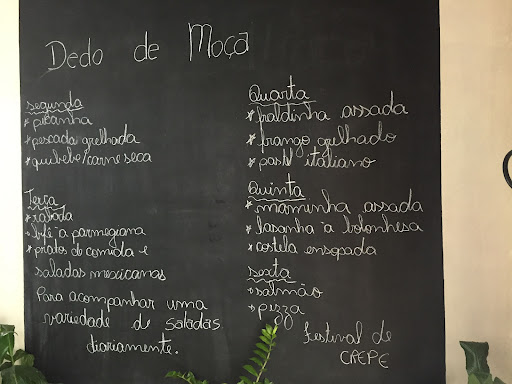 Dedo de Moça
segunda
* picanha
* pescada grelhada
* quibebe/carne seca
Terça
* rabada
* bife à parmegiana
* pratos de comida e
saladas mexicanas
Para acompanhar uma
variedade de saladas
diariamente.
Quarta
* fraldinha assada
* frango grelhado
* pastel italiano
Quinta
* maminha assada
* lasanha à bolonhesa
* costela ensopada
sexta
* salmão
* pizza
festival de
CREPE